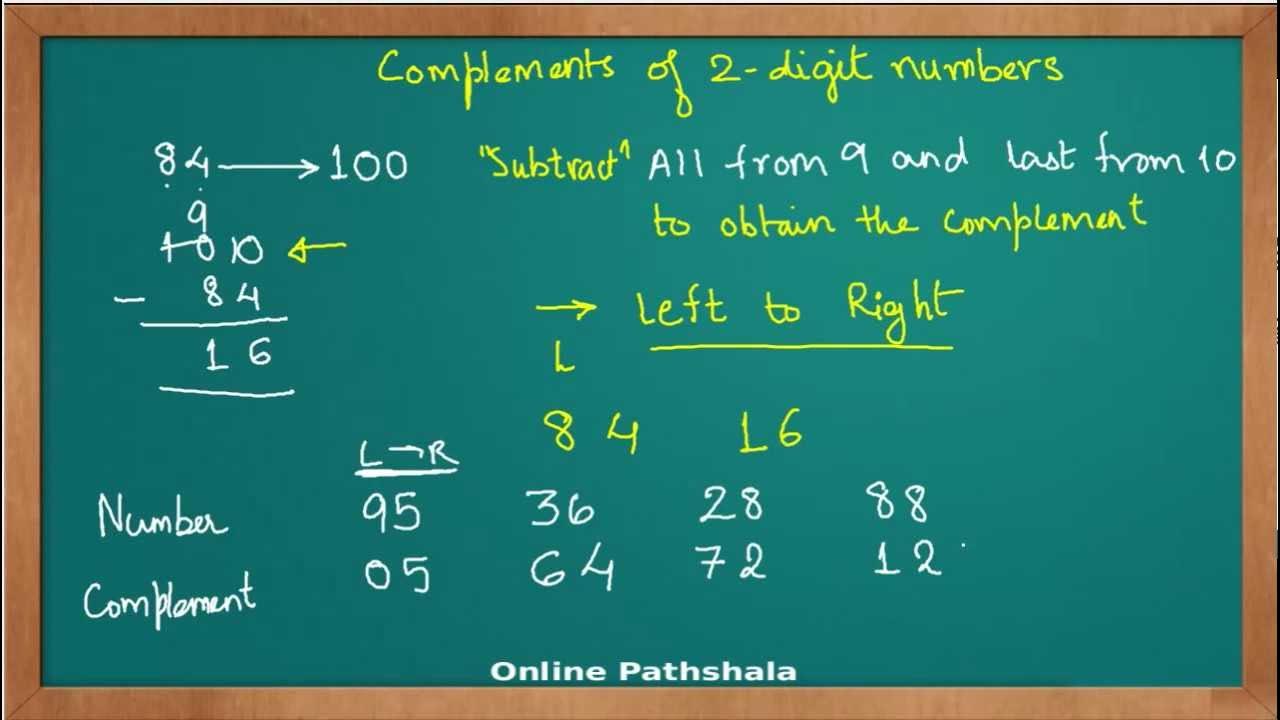 Complements of 2-digit numbers
84 → 100
9
10 10 ←
- 84
16
"Subtract" All from 9 and last from 10
to obtain the complement
→ Left to Right
L
84 16
L → R
Number 95 36 28 88
Complement 05 64 72 12
Online Pathshala